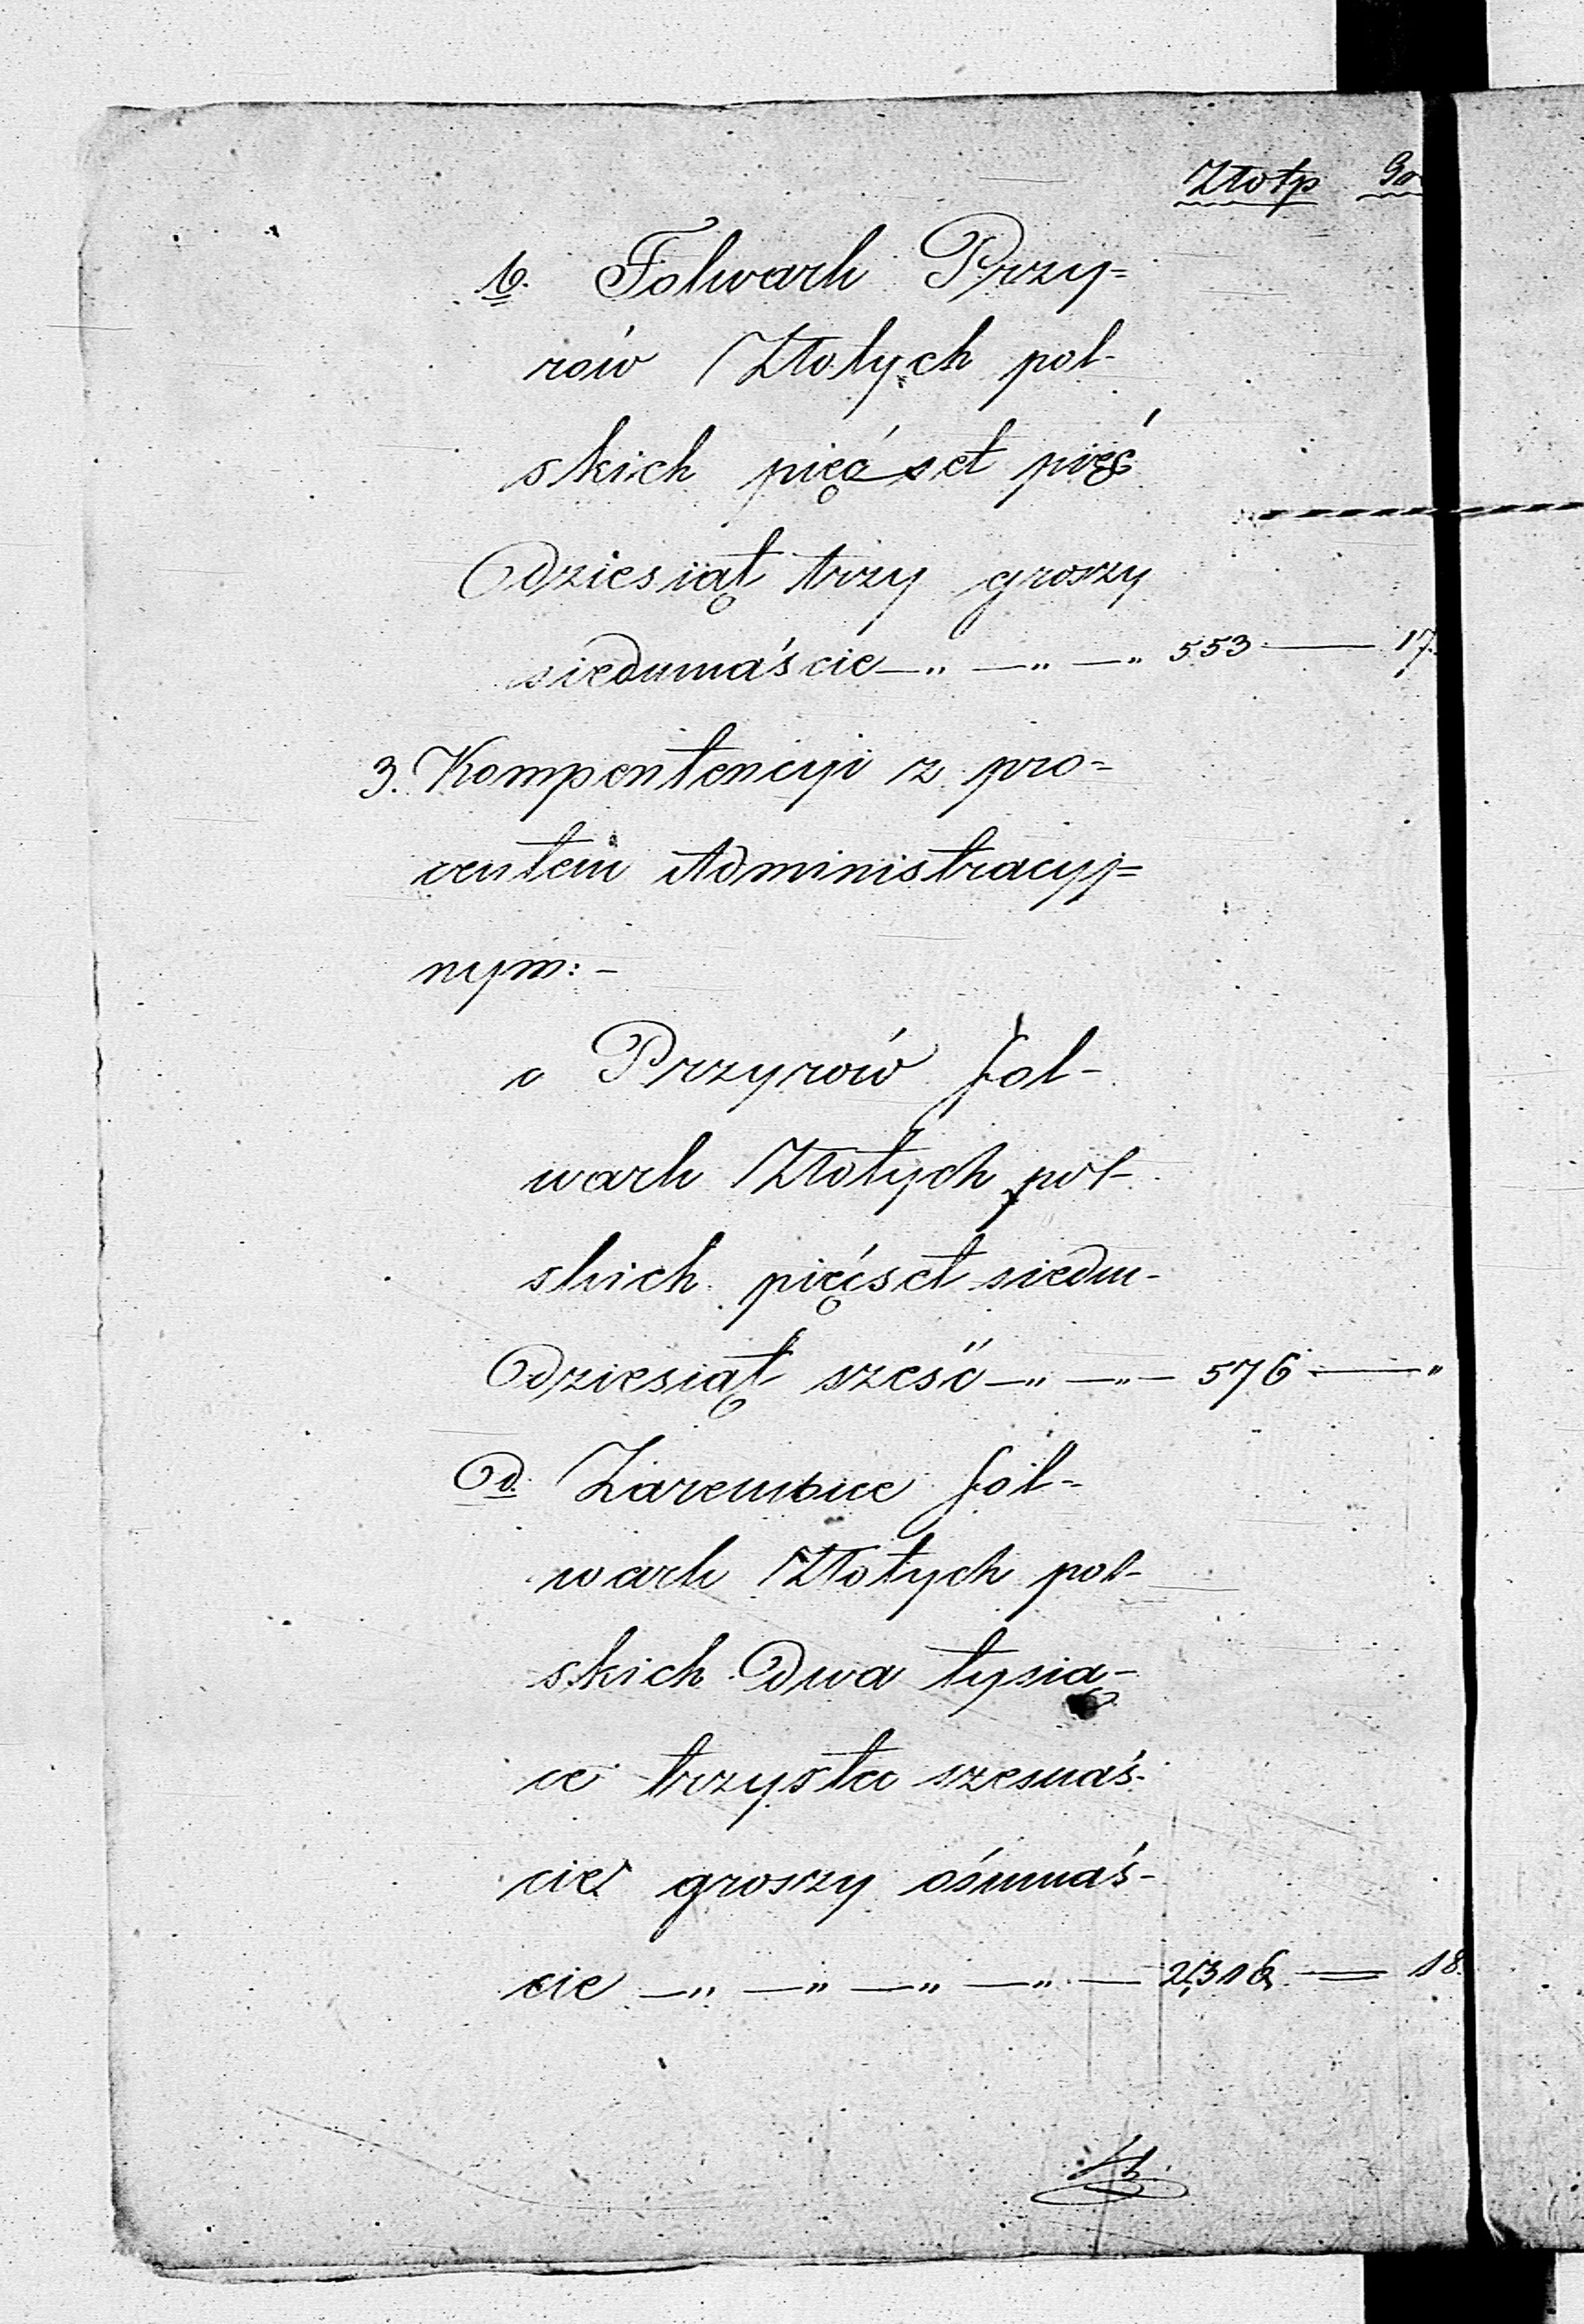 Złotp Gr
b. Folwark Przy=
rów Złotych pol-
skich pięćset pięć
dziesiąt trzy groszy
siedmnaście —„ —„ —„ 553 — 17.
3. Kompentencyi z pro=
centem Administracyj=
nym: –
c Przyrów fol-
wark Złotych pol-
skich pięćset siedm-
dziesiąt sześć —„ —„— 576 —„
d. Zarembice fol-
wark Złotych pol-
skich dwa tysią-
ce trzysta szesnaś-
cie groszy ośmnaś-
cie —„ —„ —„ —„ — 2,316 — 18.